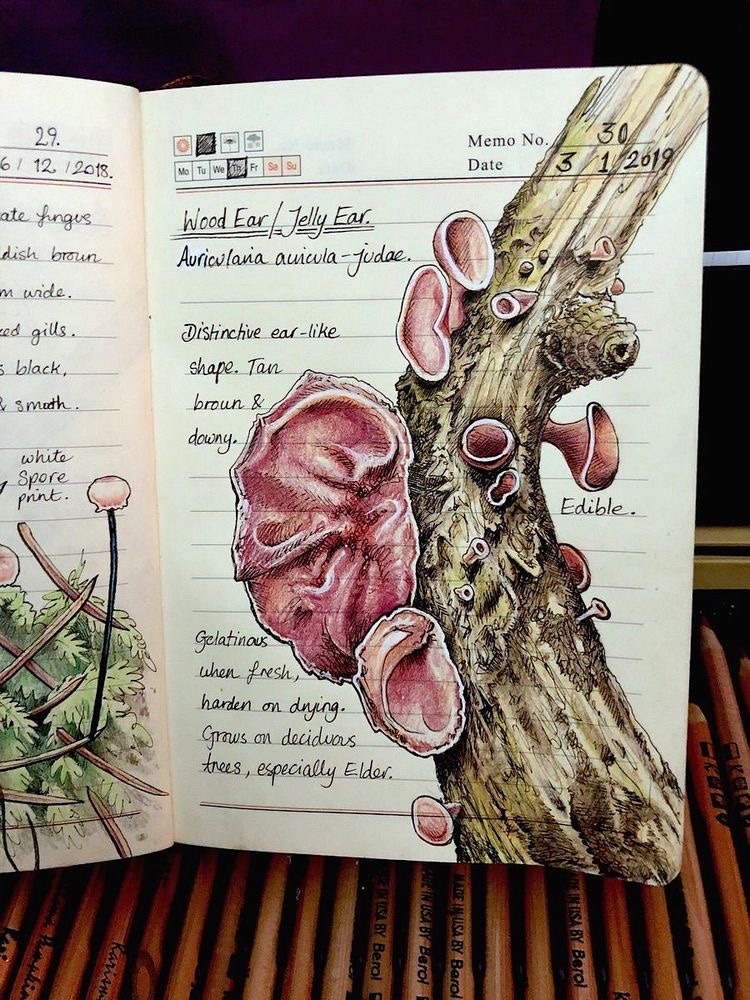 29.
6 / 12 / 2018.
ate fungus
dish broun
m wide.
ed gills.
s black,
& smoth.
white
Spore
print.
Memo No. 30
Mo Tu We Fr Sa Su
Date 3 1 2019
Wood Ear / Jelly Ear.
Auricularia auicula-judae.
Distinctive ear-like
shape. Tan
broun &
downy.
Edible.
Gelatinous
when fresh,
harden on drying.
Grows on deciduous
trees, especially Elder.
MADE IN USA BY Berol
MADE IN USA BY Berol
IN USA BY Berol